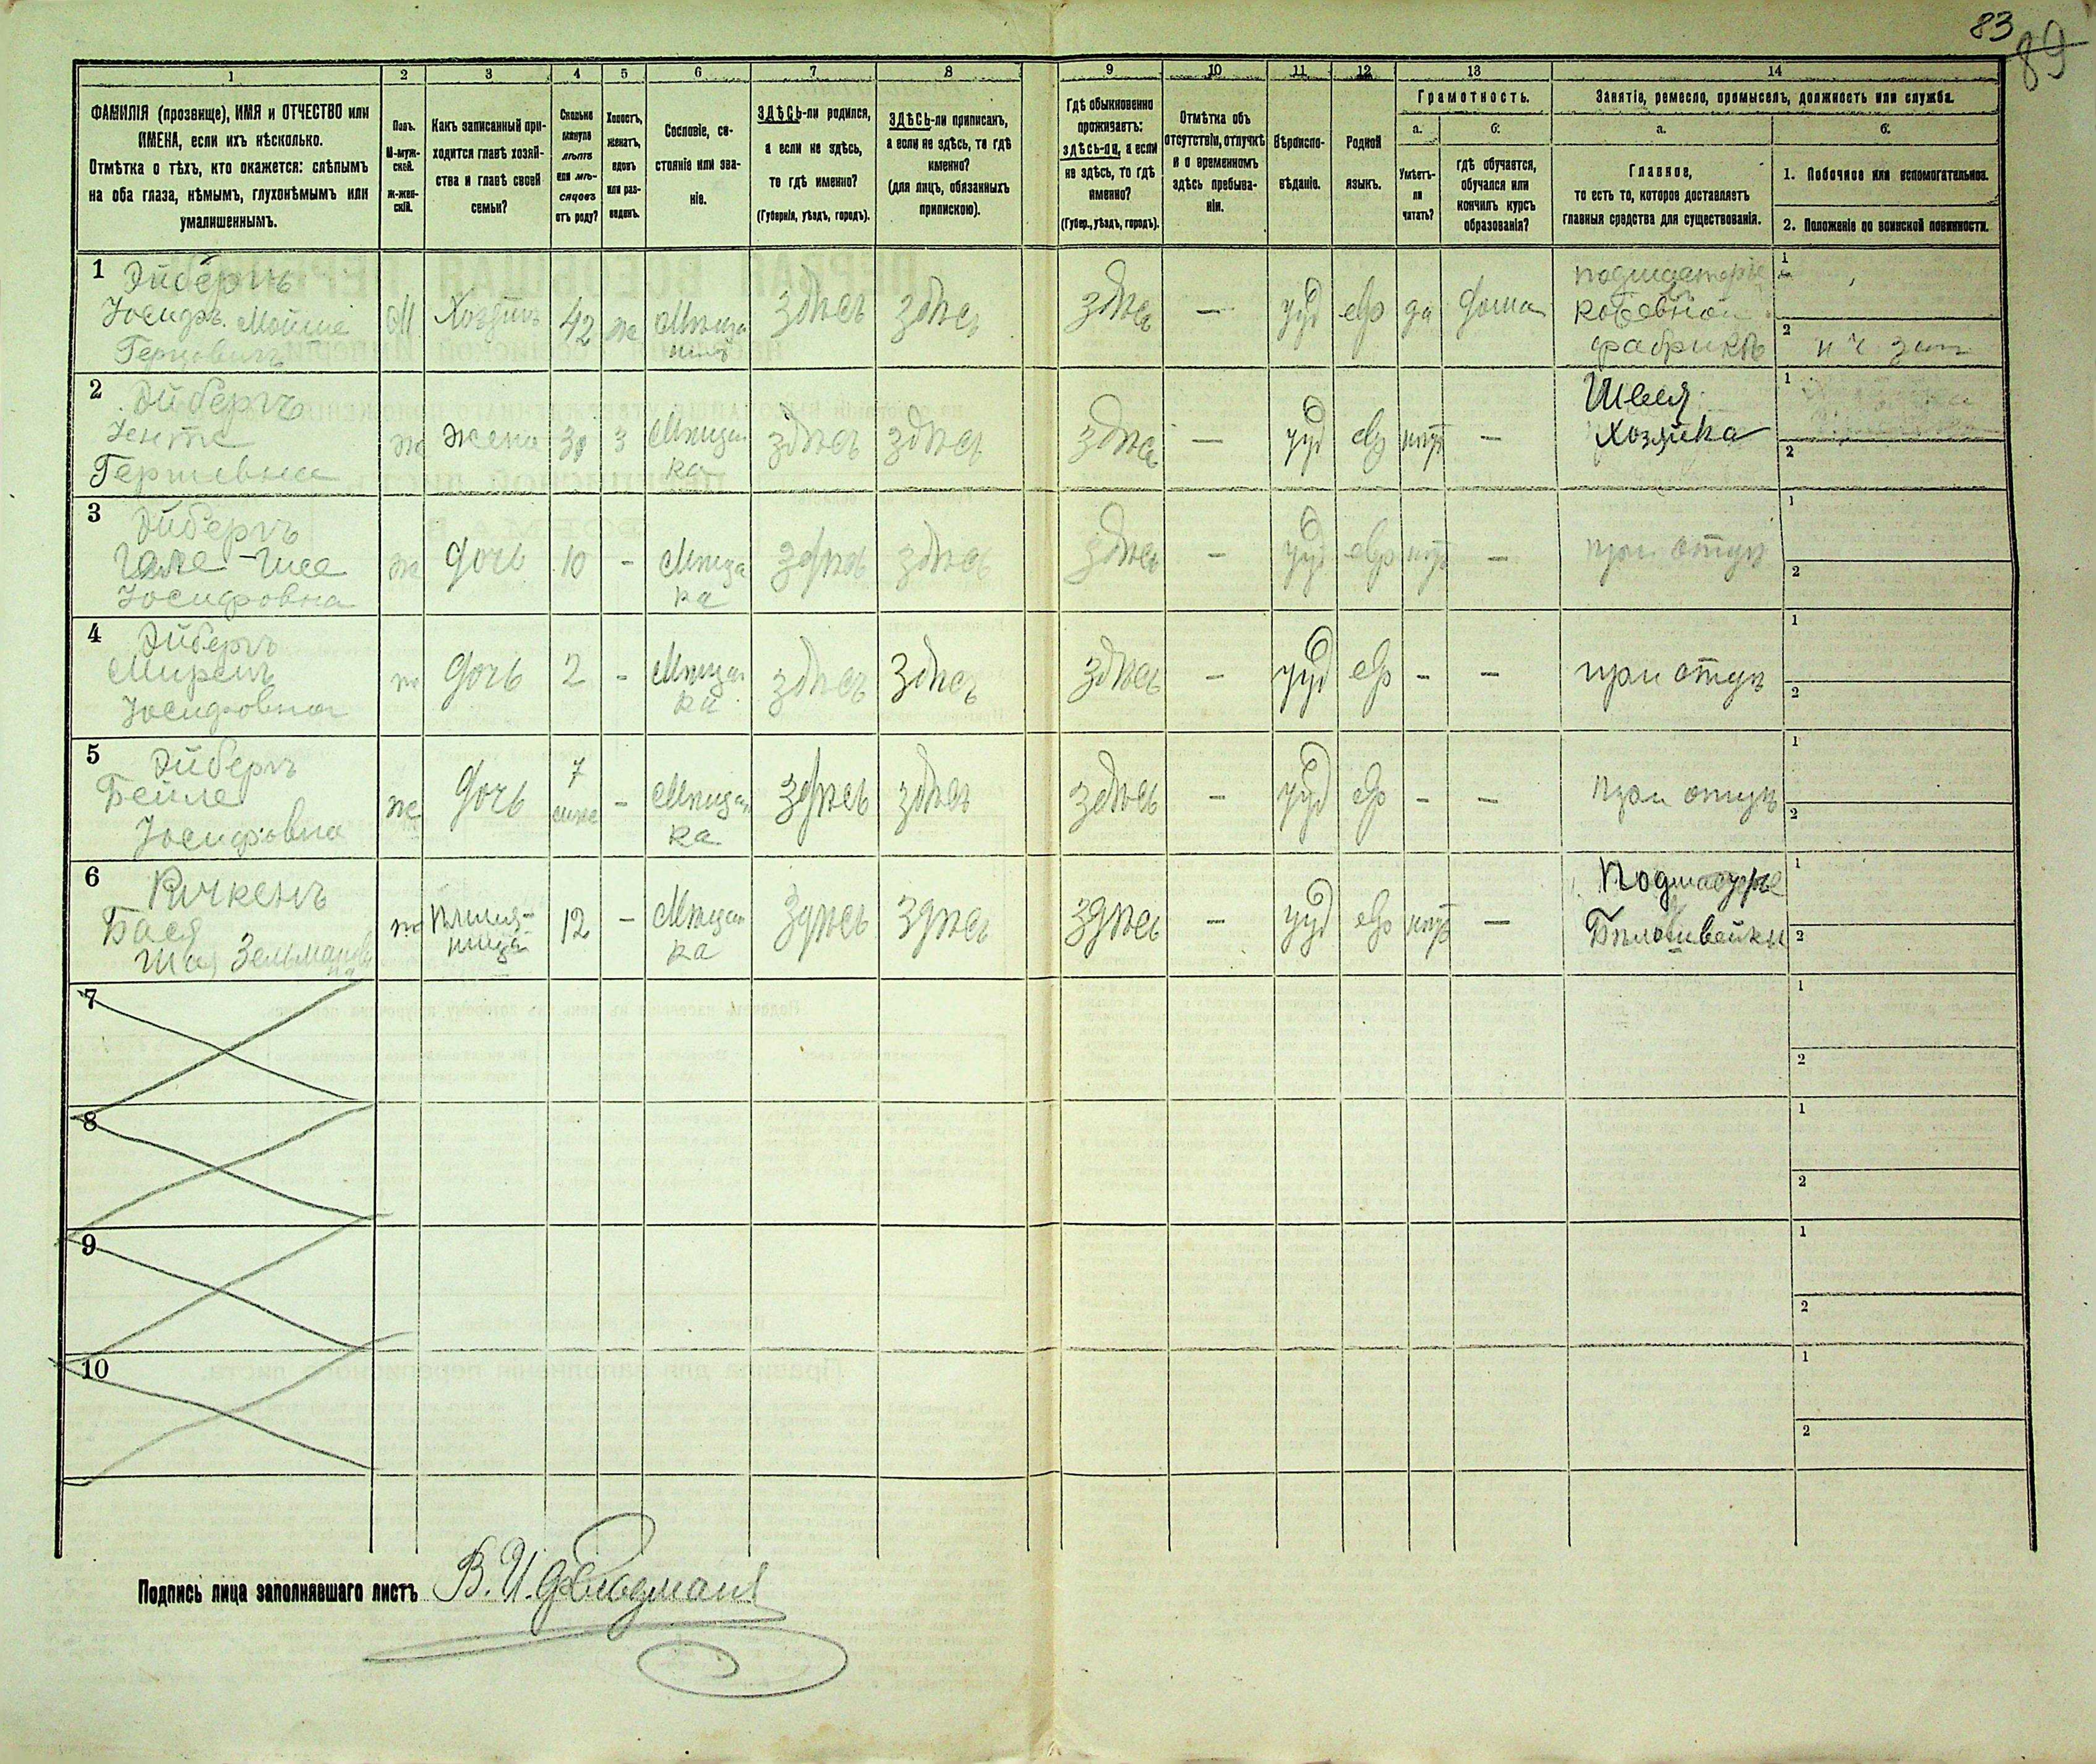 83
89
1 2 3 4 5 6 7 8 9 10 11 12 13 14
ФАМИЛІЯ (прозвище), ИМЯ и ОТЧЕСТВО или
ИМЕНА, если ихъ нѣсколько.
Отмѣтка о тѣхъ, кто окажется: слѣпымъ
на оба глаза, нѣмымъ, глухонѣмымъ или
умалишеннымъ.
Полъ.
М-муж-
ской.
Ж-жен-
скій.
Какъ записанный при-
ходится главѣ хозяй-
ства и главѣ своей
семьи?
Сколько
минуло
лѣтъ
или мѣ-
сяцевъ
отъ роду?
Холостъ,
женатъ,
вдовъ
или раз-
веденъ.
Сословіе, со-
стояніе или зва-
ніе.
ЗДѢСЬ-ли родился,
а если не здѣсь,
то гдѣ именно?
(Губернія, уѣздъ, городъ).
ЗДѢСЬ-ли приписанъ,
а если не здѣсь, то гдѣ
именно?
(для лицъ, обязанныхъ
припискою).
Гдѣ обыкновенно
проживаетъ:
здѣсь-ли, а если
не здѣсь, то гдѣ
именно?
(Губер., уѣздъ, городъ).
Отмѣтка объ
отсутствіи, отлучкѣ
и о временномъ
здѣсь пребыва-
ніи.
Вѣроиспо-
вѣданіе.
Родной
языкъ.
Грамотность.
а.
б.
Умѣетъ-
ли
читать?
гдѣ обучается,
обучался или
кончилъ курсъ
образованія?
Занятіе, ремесло, промыселъ, должность или служба.
а.
б.
Главное,
то есть то, которое доставляетъ
главныя средства для существованія.
1. Побочное или вспомогательное.
2. Положеніе по воинской повинности.
1 Эйбергъ
Іосифъ Мойше
Герцовичъ
М Хозяинъ 42 ж Мѣща
нинъ
здѣсь здѣсь здѣсь — іуд евр да дома
подмастерье
фабрикѣ
1
2
2 Эйбергъ
Генте
ж жена 30 з Мѣщан
ка
здѣсь здѣсь здѣсь — іуд евр нѣтъ —
Швея
Хозяйка
1
2
3 Эйбергъ
Іосифовна
ж дочь 10 - Мѣща
ка
здѣсь здѣсь здѣсь — іуд евр нѣтъ —
при отцѣ
1
2
4 Эйбергъ
Іосифовна
ж дочь 2 - Мѣщан
ка
здѣсь здѣсь здѣсь — іуд евр - —
при отцѣ
1
2
5 Эйбергъ
Бейле
Іосифовна
ж дочь 7
- Мѣщан
ка
здѣсь здѣсь здѣсь — іуд евр - —
при отцѣ
1
2
6
Бася
Зельманов
на
ж племян-
ница
12 - Мѣщан
ка
здѣсь здѣсь здѣсь — іуд евр нѣтъ —
Подмастерье
Бѣлошвейки
1
2
7
1
2
8
1
2
9
1
2
10
1
2
Подпись лица заполнявшаго листъ В. И. Фельдманъ